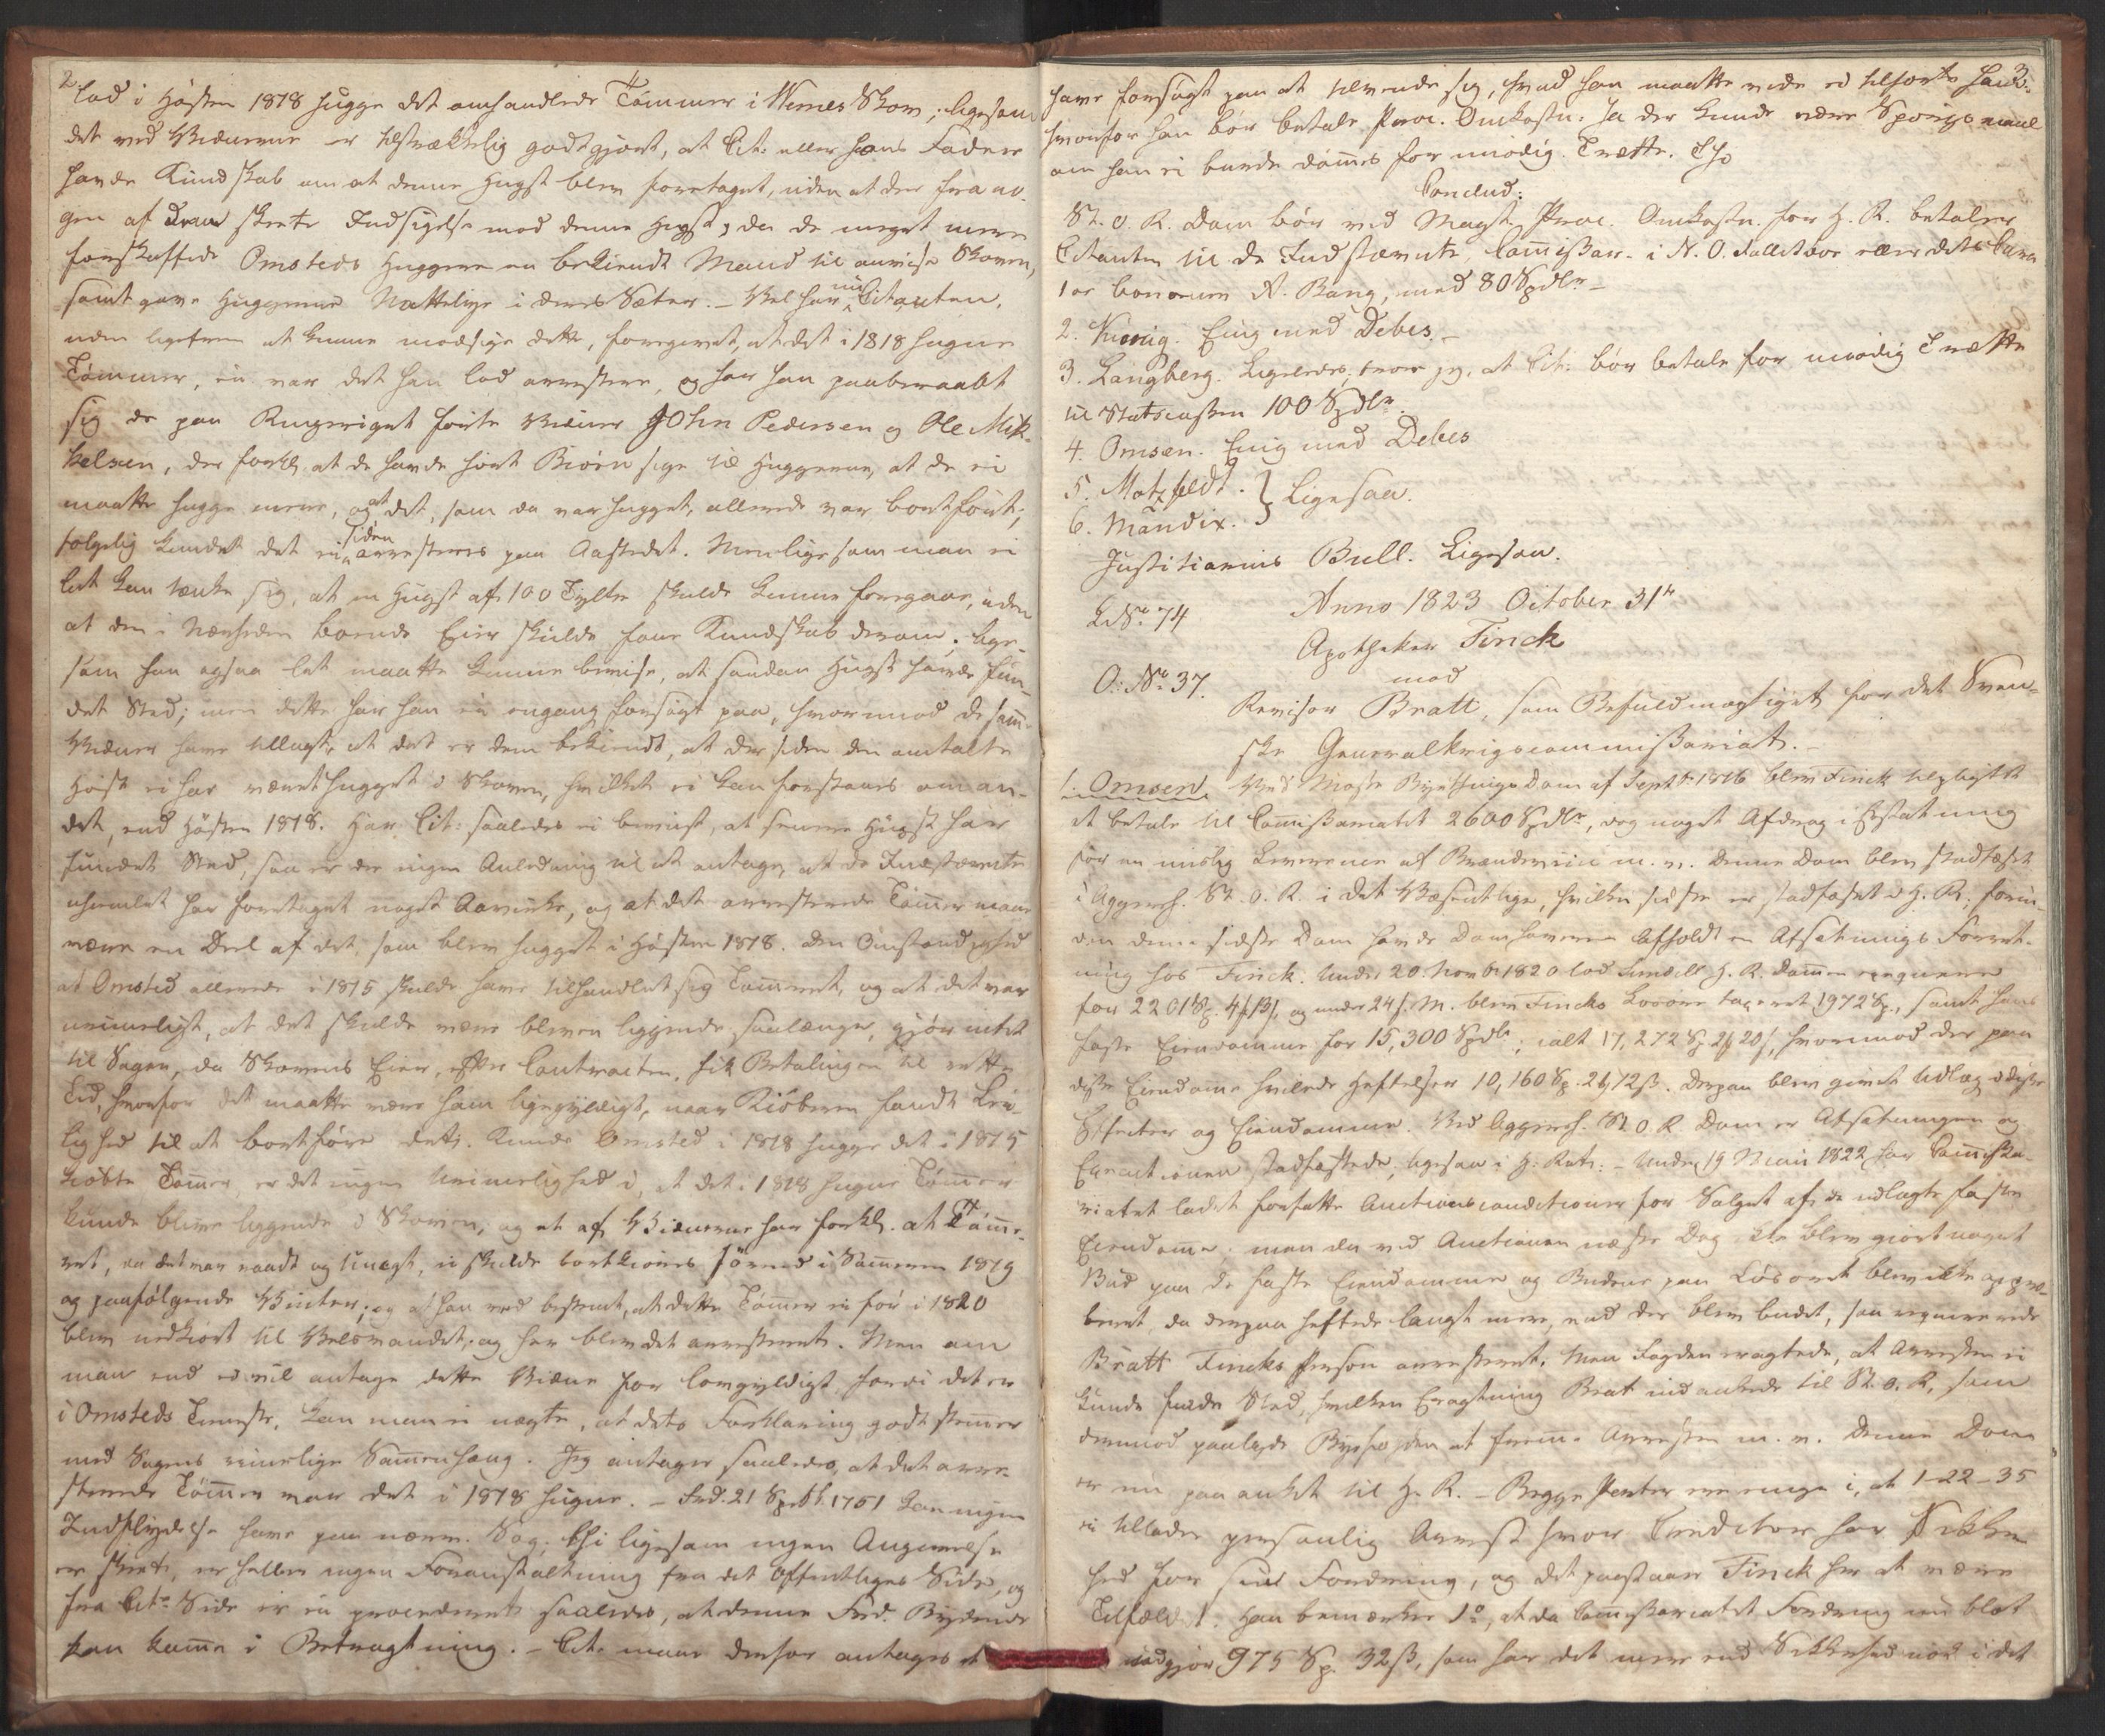 2
lod i Høsten 1818 hugge det omhandlede Tömmer i Wemes Skov; ligesom
det ved Vidnerne er tilstrækkelig godtgjort, at Cit: eller hans Fader
havde Kundskab om at denne Hugst blev foretaget, uden at der fra no-
gen af Dem skeete Indsigelse mod denne Hugst, da de meget mere
forskaffede Omsteds Huggere en bekiendt Mand til anvise Skoven,
samt gave Huggerne Natteleye i deres Sæter. - Vel har nu Citanten,
uden ligefrem at kunne modsige dette, foregivet, at det i 1818 hugne
Tömmer, ei var det han lod arrestere, og har han paaberaabt
sig de paa Ringeriget førte Vidner John Pedersen og Ole Mik-
kelsen, der forkl. at de havde hørt Biørn sige til Huggerne, at de ei
maatte hugge mere, og at det, som da var hugget, allerede var bortført,
følgelig kunde det ei siden arresteres paa Aastedet. Men ligesom man ei
let kan tænke sig, at en Hugst af 100 Tylter skulde kunne foregaae, uden
at den i Nærheden boende Eier skulde faae Kundskab derom; lige-
som han ogsaa let maatte kunne bevise, at saadan Hugst havde fun-
det Sted; men dette har han ei engang forsøgt paa, hvormod de samme
Vidner have tillagt, at det er dem bekiendt, at der siden den omtalte
Høst ei har været hugget i Skoven, hvilket ei kan forstaaes om an-
det, end Høsten 1818. Har Cit: saaledes ei beviist, at senere Hugst har
fundet Sted, saa er der ingen Anledning til at antage, at de Indstævnte
har foretaget noget, og at det arresterede Tömmer maae
være en Deel af det, som blev hugget i Høsten 1818. Den Omstændighed
at Omsted allerede i 1815 skulde have tilhandlet sig Tömmeret, og at det var
urimeligt, at det skulde være bleven liggende saalænge, gjör intet
til Sagen, da Skovens Eier, efter Contracten, fik Betalingen til rette
Tid, hvorfor det maatte være ham ligegyldigt, naar Kiöberen fandt Lei-
lighed til at bortføre det. Kunde Omsted i 1818 hugge det i 1815
kiöbte Tömmer, er det ingen Urimelighed i, at det i 1818 hugne Tömmer
kunde blive liggende i Skoven, og et af Vidnerne har forkl. at Tömme-
ret, da det var raadt og tungt, ei skulde bortkiøres førend i Sommeren 1819
og paafølgende Vinter; og at han veed bestemt, at dette Tömmer ei før i 1820
blev nedkiört til, og her blev det arresteret. Men om
man end ei vil antage dette Vidne for lovgyldigt, fordi det er
i Omsteds Tieneste, kan man ei nægte, at dets Forklaring godt stemmer
med Sagens rimelige Sammenhæng. Jeg antager saaledes, at det arre-
sterede Tömmer var det i 1818 hugne. - Frd. 21 Septbr. 1751 kan ingen
Indflydelse have paa nærv. Sag; thi ligesom ingen Angivelse
er skeet, er heller ingen Foranstaltning fra det Offentliges Side, og
fra Cits Side er ei procederet saaledes, at denne Frd. Bydende
kan komme i Betragtning. - Cit. maae derfor antages at
3
have forsøgt paa at tilvende sig, hvad han maatte vide ei tilhørte ham
hvorfor han bör betale Proc. Omkostn. Ja der kunde være Spörgsmaal
om han ei burde dömmes for unödig Trætte. Thi
Conclud:
St. O. R. Dom bör ved Magt. Proc. Omkostn. for H. R. betaler
Citanten til de Indstævnte, Commissar. i N. O. Fallitboe eller dets Cura-
tor bonorum A. Bang, med 80 Spdlr -
2. Einig med Debes. -
3. Langberg. Ligeledes; troer jeg, at Cit: bör betale for unödig Trætte
til Statscassen 100 Spdlr.
4. Omsen. Enig med Debes
5. Motzfeldt. } Ligesaa.
6. Mandix.
Justitiarius Bull. Ligesaa.
L No. 74 Anno 1823 October 31te
Apotheker Finck
O: No. 37. mod
Revisor Bratt, som Befuldmægtiget for det Sven-
ske Generalkrigscommissariat. -
1. Omsen. Ved Mosse Byethings Dom af Septbr. 1816 blev Finck tilpligtet
at betale til Commissariatet 2600 Spdlr, dog noget Afdrag i Erstatning
for en Leverance af Brændeviin m. v. Denne Dom blev stadfæstet
i Aggersh. St. O. R. i det Væsentlige, hvilken sidste er stadfæstet ved H. R.; foruden
denne sidste Dom havde Domhaveren afholdt en Afsætnings Forret-
ning hos Finck. Under 20. Novbr 1820 lod H. R. Dommen
for 2201 Sp. 4 13 ß, og under 24 s. M. blev Fincks Løsøre taxeret 1972 Sp., samt hans
faste Eiendomme for 15,300 Spdlr; ialt 17,272 Sp. 2 20 ß, hvormod der paa
disse Eiendomme hvilede Heftelser 10,160 Sp. 2 12 ß. Derpaa blev giort Udlæg i disse
Effecter og Eiendomme. Ved Aggersh. St. O. R. Dom er Afsætningen og
Executionen stadfæstede, ligesaa i H. Ret: - Under 19 Mai 1822 har Commissa-
riatet ladet forfatte Auctionsconditioner for Salget af de udlagte faste
Eiendomme. Men da ved Auctionen næste Dag ikke blev giort noget
Bud paa de faste Eiendomme og Budene paa Løsøret blev ikke appro-
beret, da derpaa heftede langt mere, end der blev budet, saa requirerede
Bratt Fincks Person arresteret. Men Fogden eragtede, at Arresten ei
kunde finde Sted, hvilken Eragtning Brat indankede til St. O. R., som
derimod paalagde Byefogden at fremme Arresten m. v. Denne Dom
er nu paaanket til H. R. - Begge Parter ere enige i, at 1-22-35
ei tillader personlig Arrest hvor Creditor har Sikker-
hed for sin Fordring, og det paastaaer Finck her at være
Tilfældet. Han bemærker 1o, at da Commissariatet Fordring nu blot
udgjör 975 Sp. 32 ß, som har det mere end Sikkerhed nok i det